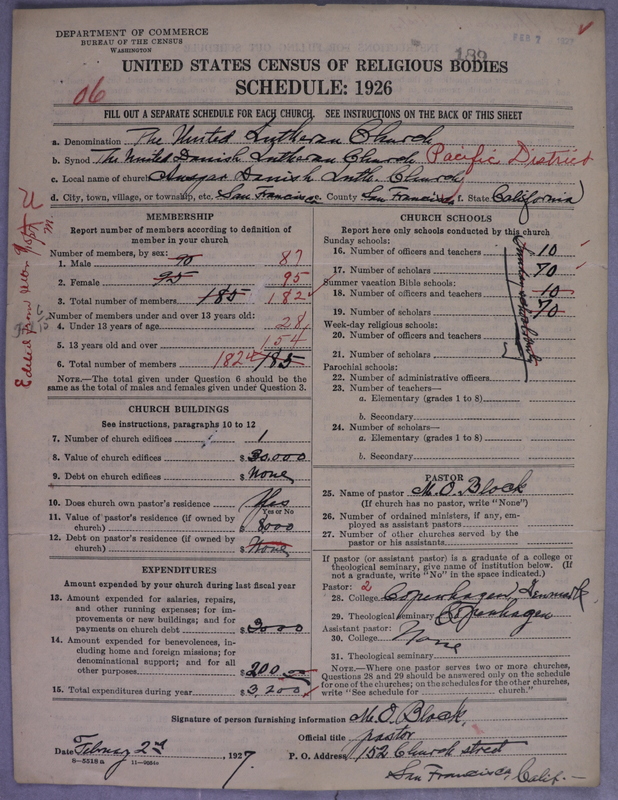 DEPARTMENT OF COMMERCE
BUREAU OF THE CENSUS
WASHINGTON
189
FEB 7 1927
UNITED STATES CENSUS OF RELIGIOUS BODIES
SCHEDULE: 1926
06
FILL OUT A SEPARATE SCHEDULE FOR EACH CHURCH. SEE INSTRUCTIONS ON THE BACK OF THIS SHEET
a. Denomination The United Lutheran Church
b. Synod The United Danish Lutheran Church Pacific District
c. Local name of church Ansgar Danish Luth. Church
d. City, town, village, or township, etc. San Francisco County San Francisco f. State California
MEMBERSHIP
Report number of members according to definition of
member in your church
Number of members, by sex:
1. Male 90 87
2. Female 95 95
3. Total number of members 185 182
Number of members under and over 13 years old:
4. Under 13 years of age 28
5. 13 years old and over 154
6. Total number of members 182 185
NOTE.—The total given under Question 6 should be
same as the total of males and females given under Question 3.
CHURCH BUILDINGS
See instructions, paragraphs 10 to 12
7. Number of church edifices 1
8. Value of church edifices $ 30,000
9. Debt on church edifices $ None
10. Does church own pastor's residence Yes
Yes or No
11. Value of pastor's residence (if owned by
church) $ 8000
12. Debt on pastor's residence (if owned by
church) $ None
EXPENDITURES
Amount expended by your church during last fiscal year
13. Amount expended for salaries, repairs,
and other running expenses; for im-
provements or new buildings; and for
payments on church debt $ 3000
14. Amount expended for benevolences, in-
cluding home and foreign missions; for
denominational support; and for all
other purposes $ 200.00
15. Total expenditures during year $ 3,200
CHURCH SCHOOLS
Report here only schools conducted by this church
Sunday schools:
16. Number of officers and teachers 10
17. Number of scholars 70
Summer vacation Bible schools:
18. Number of officers and teachers 10
19. Number of scholars 70
Week-day religious schools:
20. Number of officers and teachers
21. Number of scholars
Parochial schools:
22. Number of administrative officers
23. Number of teachers—
a. Elementary (grades 1 to 8)
b. Secondary
24. Number of scholars—
a. Elementary (grades 1 to 8)
b. Secondary
PASTOR
25. Name of pastor M. O. Block
(If church has no pastor, write "None")
26. Number of ordained ministers, if any, em-
ployed as assistant pastors
27. Number of other churches served by the
pastor or his assistants
If pastor (or assistant pastor) is a graduate of a college or
theological seminary, give name of institution below. (If
not a graduate, write "No" in the space indicated.)
Pastor: 2
28. College Copenhagen, Denmark
29. Theological seminary Copenhagen
Assistant pastor:
30. College None
31. Theological seminary
NOTE.—Where one pastor serves two or more churches,
Questions 28 and 29 should be answered only on the schedule
for one of the churches; on the schedules for the other churches,
write "See schedule for church."
Signature of person furnishing information M. O. Block
Official title pastor
Date February 2nd, 1927. P. O. Address 152 Church street
8—5518a 11—9034a San Francisco, Calif.